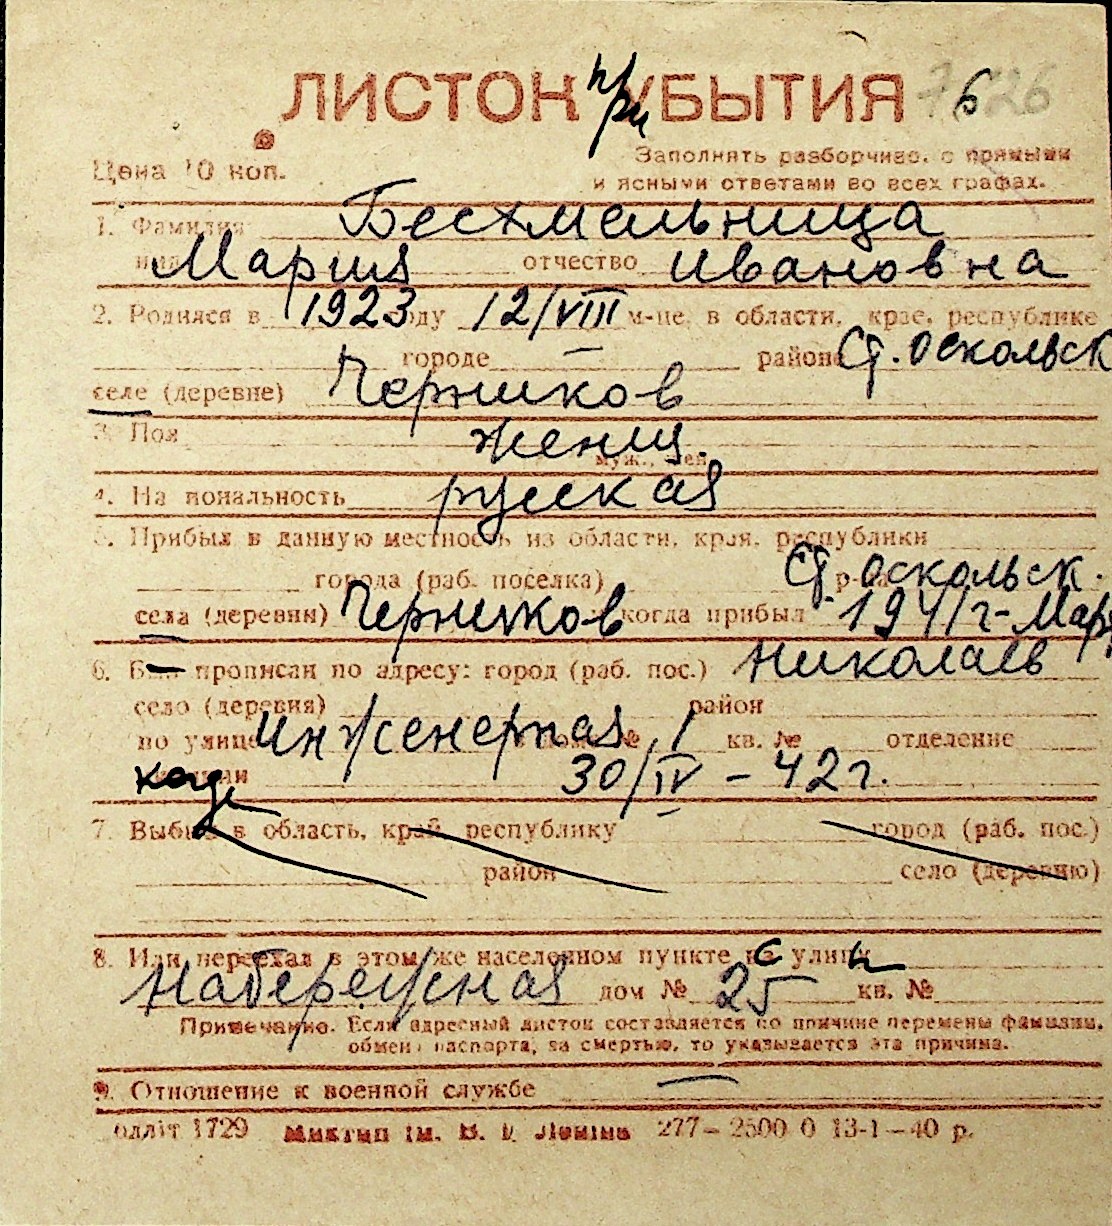 ЛИСТОК при УБЫТИЯ 7626
Цена 10 коп.
Заполнять разборчиво, с прямыми
и ясными ответами во всех графах.
1. Фамилия Бесхмельница
имя Мария отчество Ивановна
2. Родился в 1923 году 12/VIII м-це, в области, крае, республике
городе районе Ст. Оскольск
селе (деревне) Черников
3. Пол женщ.
муж., жен.
4. Национальность русская
5. Прибыл в данную местность из области, края, республики
города (раб. поселка) р-на Ст. Оскольск.
села (деревни) Черников когда прибыл 1941 г - Март
6. Был прописан по адресу: город (раб. пос.) Николаев
село (деревня) район
по улице Инженерная дом № 1 кв. № отделение
милиции когда 30/IV – 42 г.
7. Выбыл в область, край, республику город (раб. пос.)
район село (деревню)
8. Или переехал в этом же населенном пункте с улицы
Набережная дом № 25 кв. №
Примечание. Если адресный листок составляется по причине перемены фамилии,
обмена паспорта, за смертью, то указывается эта причина.
9. Отношение к военной службе —
одліт 1729 Миктип ім. В. І. Леніна 277–2500 0 13-1–40 р.